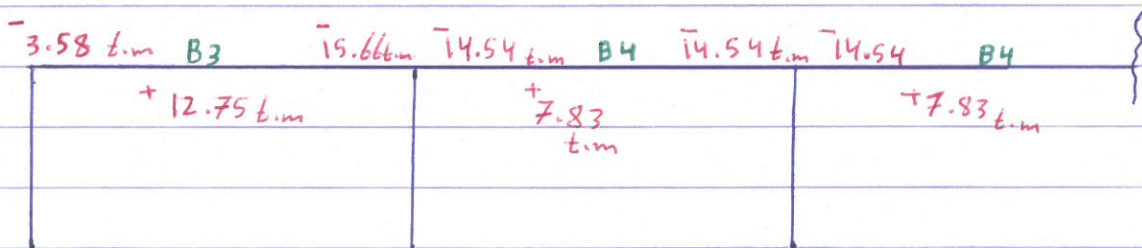 -3.58 t.m B3 -15.66t.m -14.54 t.m B4 -14.54 t.m -14.54 B4
+12.75 t.m +7.83 +7.83 t.m
t.m